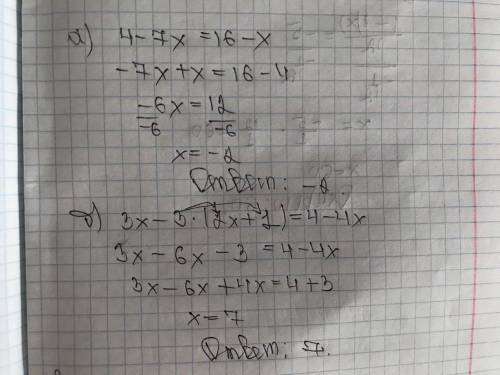 а) 4-7x=16-x
-7x+x=16-4
-6x/-6=12/-6
x=-2
Ответ: -2.
б) 3x-3·(2x+1)=4-4x
3x-6x-3=4-4x
3x-6x+4x=4+3
x=7
Ответ: 7.